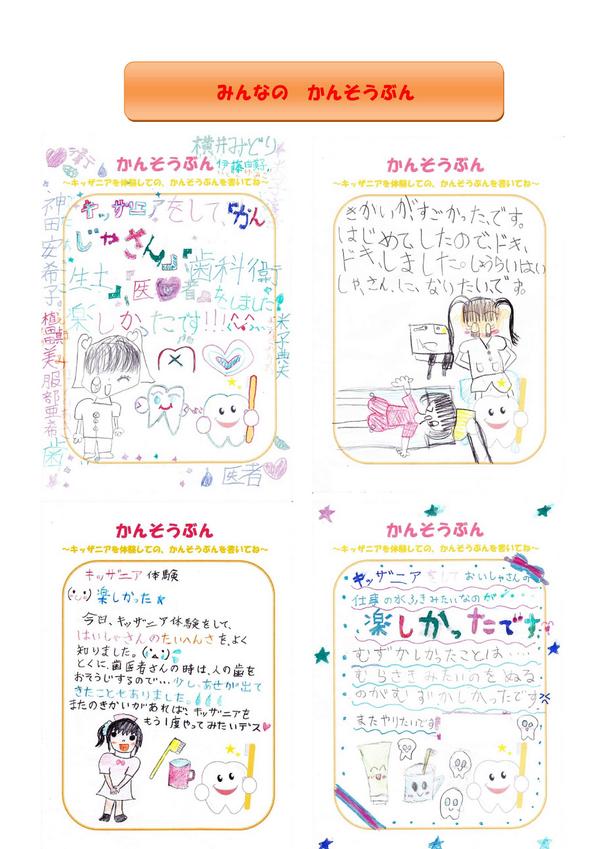 みんなの　かんそうぶん
横井みどり
かんそうぶん
～キッザニアを体験しての、かんそうぶんを書いてね～
キッザニアをして、かん
じゃさん、
生士、医者、歯科衛
をしました
楽しかったです!!!^^
神田安希子。
植真美
服部亜希
歯
医者
かんそうぶん
～キッザニアを体験しての、かんそうぶんを書いてね～
きかいがすごかったです。
はじめてしたのでドキ、
ドキ、しました。しょうらいはい
しゃ、さん、に、なりたいです。
かんそうぶん
～キッザニアを体験しての、かんそうぶんを書いてね～
キッザニア 体験
楽しかった☆
今日、キッザニア体験をして、
はいしゃさんのたいへんさを、よく
知りました。
とくに、歯医者さんの時は、人の歯を
おそうじするので…少し、あせが出て
きたこともありました
またのきかいがあれば、キッザニアを
もう1度やってみたいデス♥
かんそうぶん
～キッザニアを体験しての、かんそうぶんを書いてね～
キッザニアをしておいしゃさんの
仕事のはみがきみたいなのが
楽しかったです。
むずかしかったことは……
むらさきみたいのをぬる
のがむずかしかったです
またやりたいです